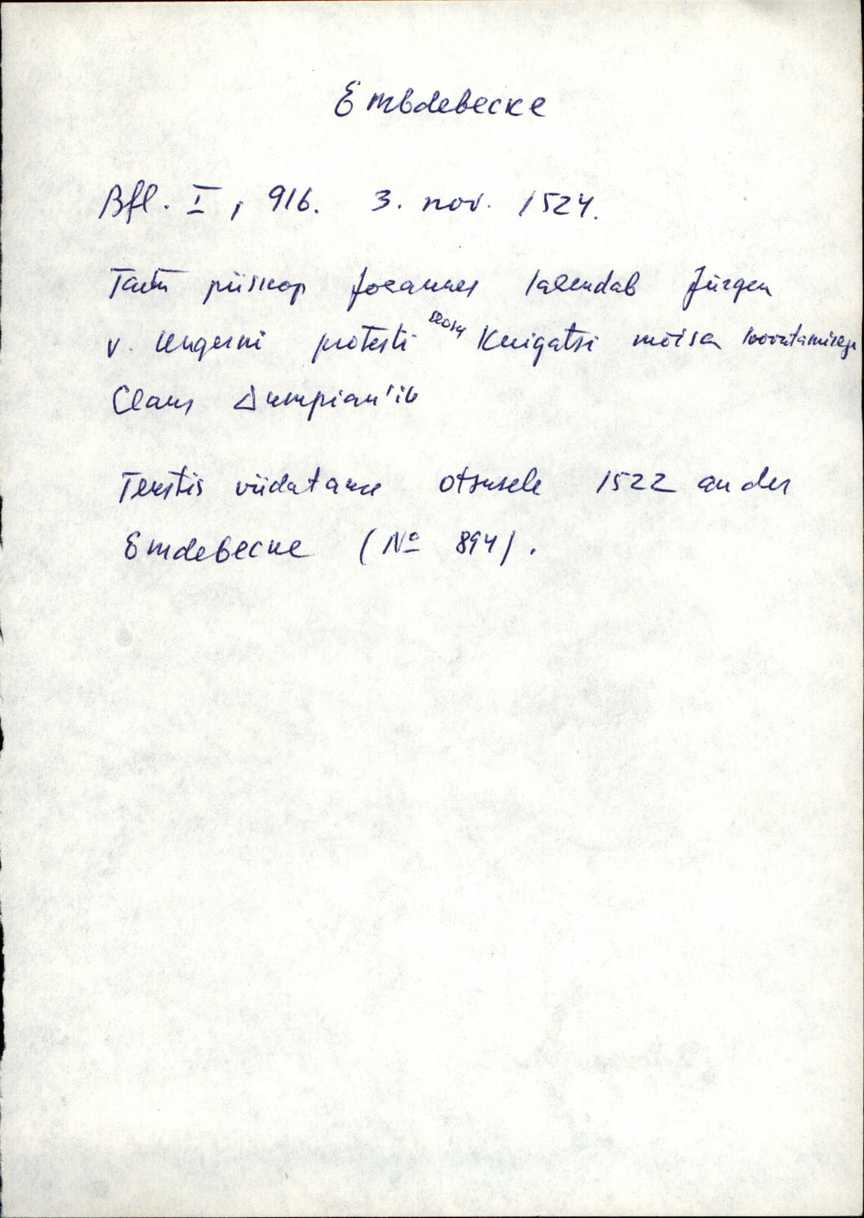 Embdebecke
Bfl. I, 916. 3. nov. 1524.
Tartu piiskop Joeannes lahendab Jürgen
v. Ungerni protesti koos Kuigatsi mõisa loovutamisega
Claus Dumpian'ile
Tekstis viidatakse otsusele 1522 an der
Emdebecke (No 894).